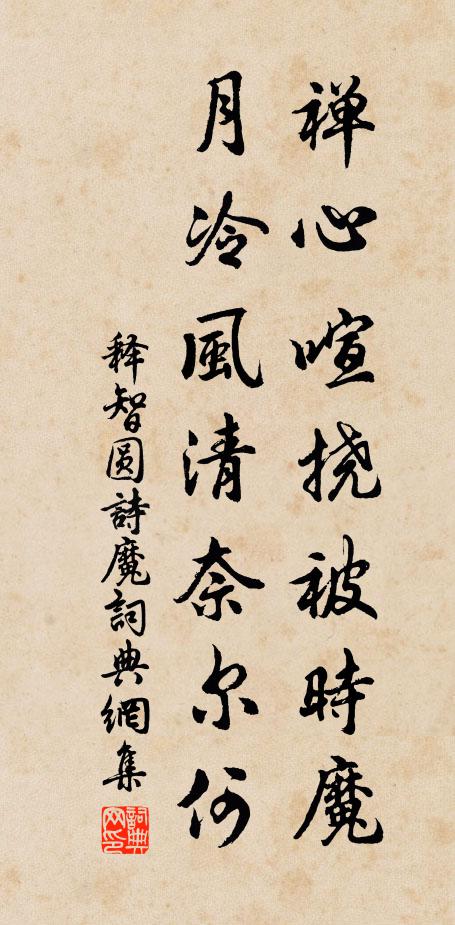 禅心喧挠被時魔
月冷風清奈尔何
释智圆詩魔詞典網集
詞典网印